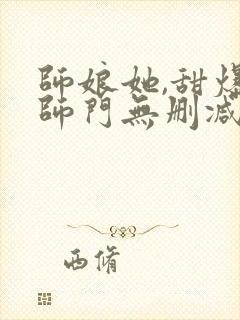 師娘她,甜爆
師門無刪减
西脩